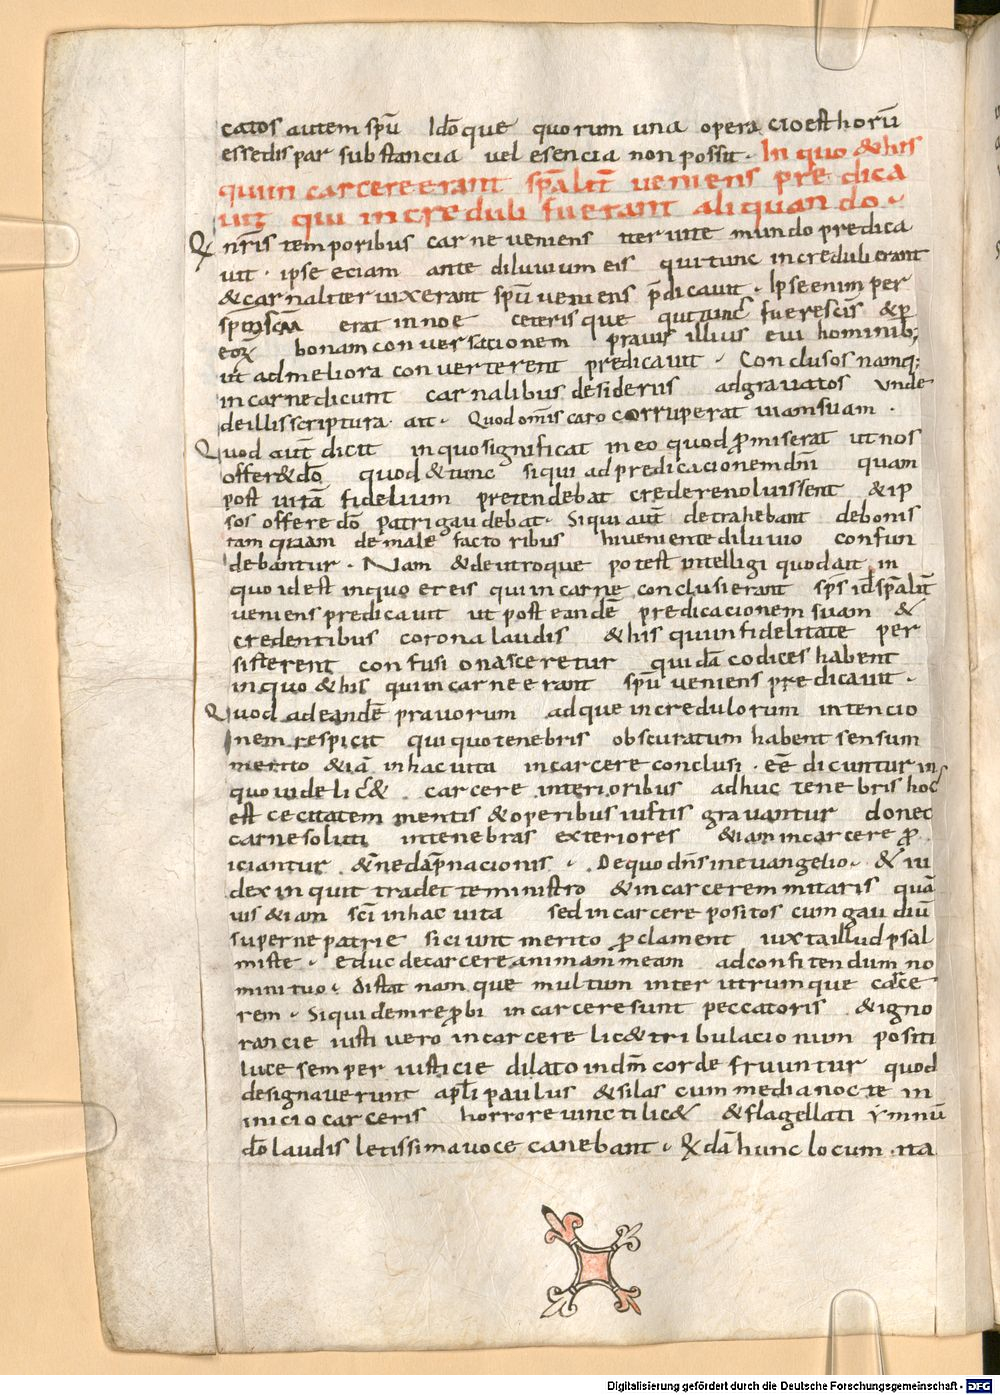 catos autem spū Ido̅que quorum una opera cio est horū
esse dispar substancia vel esencia non possit · In quo & his
qui in carcere erant sp̅alit̅ veniens predica
uit qui increduli fuerant aliquando ·
Qui nr̅is temporibus carne veniens iter vite mundo predica
uit · ipse eciam ante diluvium eis qui tunc increduli erant
& carnaliter uixerant spū veniens p̅dicauit · Ipse enim per
spm̅ scm̅ erat in noe ceteris que qui tunc fuere sci̅s & p̲
eoꝝ bonam conversacionem prauis illius evi hominib;
ut ad meliora converterent predicauit · Conclusos namq;
in carne dicunt carnalibus desiderus adgravatos vnde
de illis scriptura · ait · Quod om̅is caro corruperat uiam suam ·
Quod aut̅ dicit in quo significat in eo quod p̲miserat ut nos
offer& do̅ quod & tunc siqui ad predicacionem dn̅i quam
post vitā fidelium pretendebat credere noluissent & ip
sos offere do̅ patri gaudebat · Siqui aut̅ detrahebant de bonis
tam quam de male factoribus hi veniente diluvio confun
debantur · Nam & de utroque potest intelligi quod ait in
quo id est in quo et eis qui in carne conclusi erant sps̅ id ÷ sp̅alit̅
veniens predicauit ut post eandē predicacionem suam &
credentibus corona laudis & his qui infidelitate per
sisterent confusio nasceretur quidā codices habent
in quo & his qui in carne erant spū veniens predicauit ·
Quod ad eandē pravorum adque incredulorum intencio
nem respicit qui quo tenebris obscuratum habent sensum
merito &iā in hac vita in carcere conclusi · ee̅ dicuntur in
quo uidelic& carcere interioribus adhuc tenebris hoc
est cecitatem mentis & operibus iustis gravantur donec
carne soluti in tenebras exteriores &iam in carcere p̲
iciantur &n̅e dāpnacionis · De quo dn̅s in evangelio · & iu
dex inquit tradet te ministro & in carcerem mitaris quā
uis &iam sci̅ in hac vita sed in carcere positos cum gaudiū
superne patrie sici unt merito p̲clament iuxta illud psal
miste · educ de carcere animam meam ad confitendum no
mini tuo · distat nam que multum inter utrumque carce
rem · Siquidem rep̲bi in carcere sunt peccatoris & igno
rancie iusti vero in carcere lic& tribulacionum positi
luce semper iusticie dilato in dm̅ corde fruuntur quod
designaverunt apl̅i paulus & silas cum media nocte in
inicio carceris horrore vincti lic& & flagellati ẏmnū
do̅ laudis letissima voce canebant · Qdā hunc locum · ita
Digitalisierung gefördert durch die Deutsche Forschungsgemeinschaft - DFG